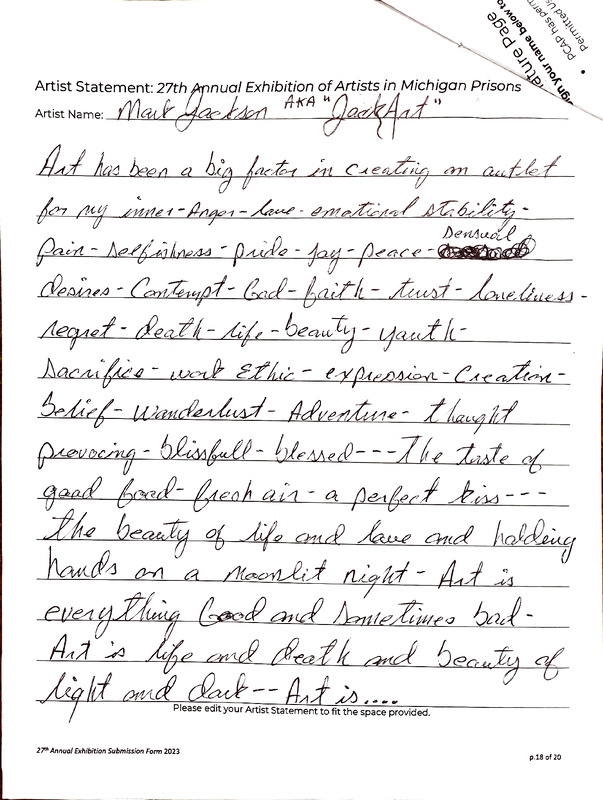 ature Page
ign your name below to
PCAP has perm
Permitted Us
Artist Statement: 27th Annual Exhibition of Artists in Michigan Prisons
Artist Name: Mark Jackson AKA "JackArt"
Art has been a big factor in creating an outlet
for my inner-Anger-love-emotional stability-
pain-selfishness-pride-joy-peace-sensual
desires-Contempt-God-faith-trust-loneliness-
regret-death-life-beauty-youth-
sacrifice-work Ethic-expression-Creation-
belief-wanderlust-Adventure-thought
provocing-blissfull-blessed---The taste of
good food-fresh air-a perfect kiss---
the beauty of life and love and holding
hands on a moonlit night-Art is
everything Good and sometimes bad-
Art is life and death and beauty of
light and dark--Art is....
Please edit your Artist Statement to fit the space provided.
27th Annual Exhibition Submission Form 2023
p.18 of 20